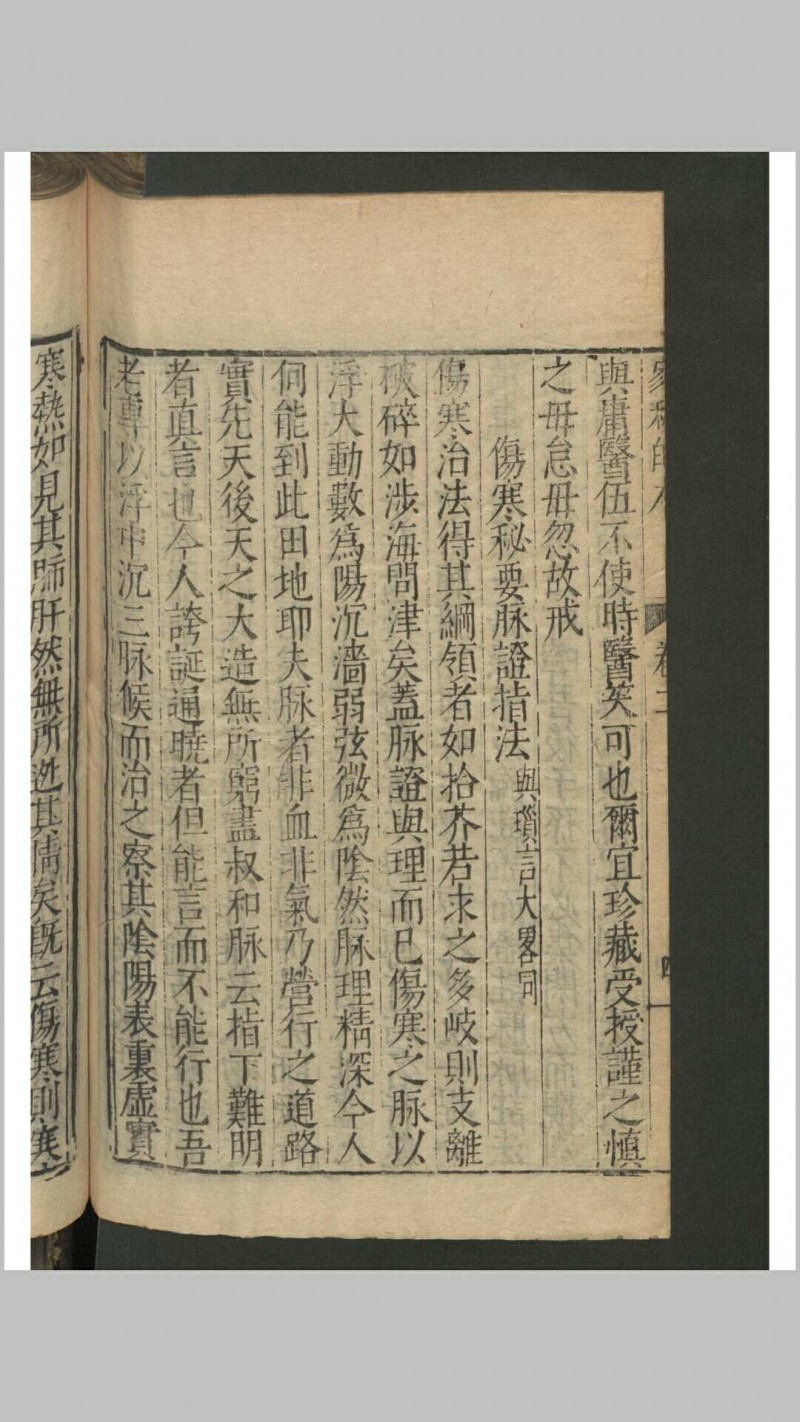 卷二
四
與庸醫伍不使時醫笑可也爾宜珍藏受授謹之慎
之毋怠毋忽故戒
傷寒秘要脉證指法與瑣言大畧同
傷寒治法得其綱領者如拾芥若求之多岐則支離
破碎如涉海問津矣蓋脉證與理而已傷寒之脉以
浮大動數爲陽沉濇弱弦微爲陰然脉理精深今人
何能到此田地耶夫脉者非血非氣乃營行之道路
實先天後天之大造無所窮盡叔和脉云指下難明
者真言也今人誇誕通曉者但能言而不能行也吾
老尊以浮中沉三脉候而治之察其陰陽表裏虛實
寒熱如見其肺肝然無所逃其情矣既云傷寒則寒